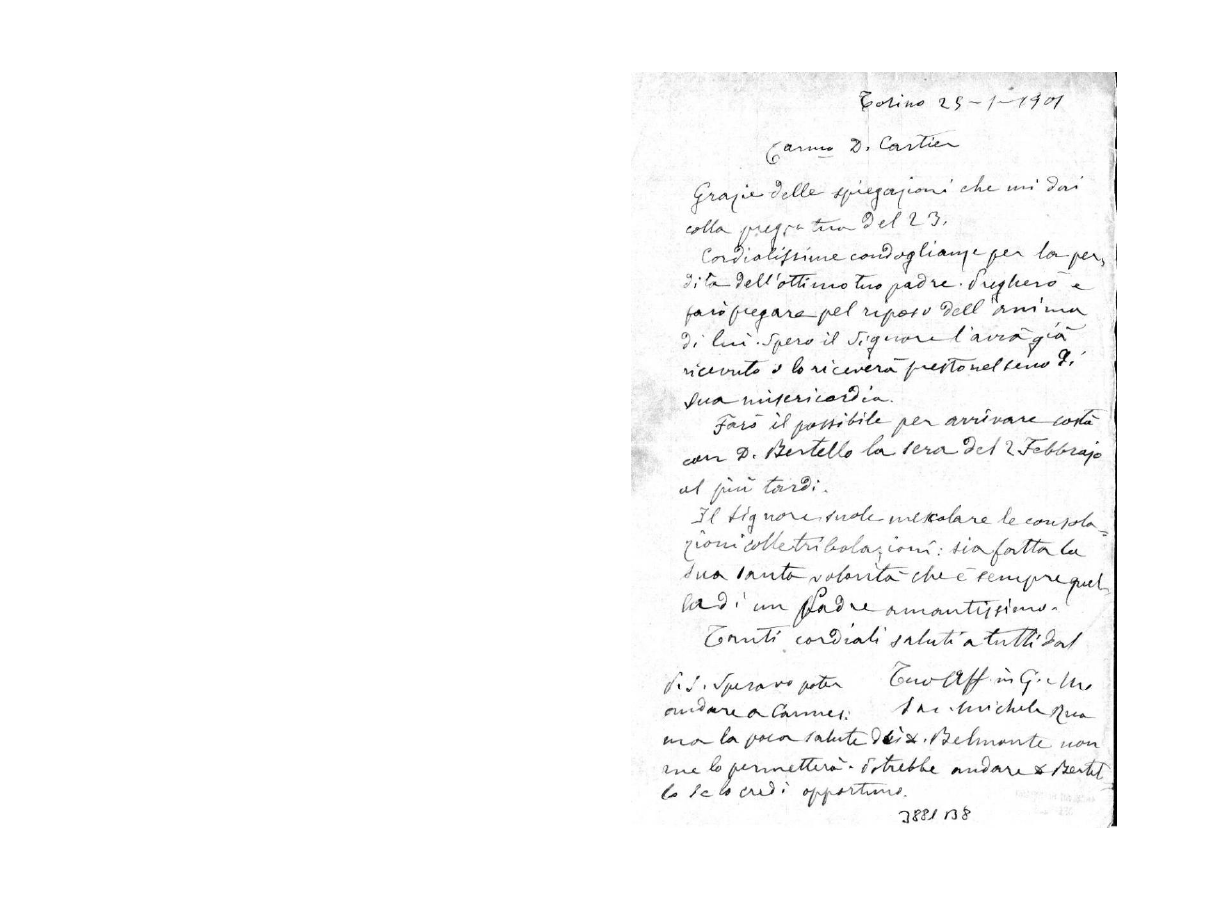 Torino 25-1-1901
Carmo D. Cartier
Grazie delle spiegazioni che mi dai
colla pregta tua del 23.
Cordialissime condoglianze per la per-
dita dell'ottimo tuo padre. Pregherò e
farò pregare pel riposo dell'anima
di lui. Spero il Signore l'avrà già
ricevuto o lo riceverà presto nel seno di
sua misericordia.
Farò il possibile per arrivare costà
con D. Bertello la sera del 2 Febbrajo
al più tardi.
Il Signore suole mescolare le consola-
zioni colle tribolazioni: sia fatta la
sua santa volontà che è sempre quel-
la di un Padre amantissimo.
Tanti cordiali saluti a tutti dal
Tuo Aff in G. e M.
Sac. Michele Rua
P.S. Speravo poter
andare a Cannes:
ma la poca salute di D. Belmonte non
me lo permetterà. Potrebbe andare D Bertel
lo se lo credi opportuno.
3881 B8